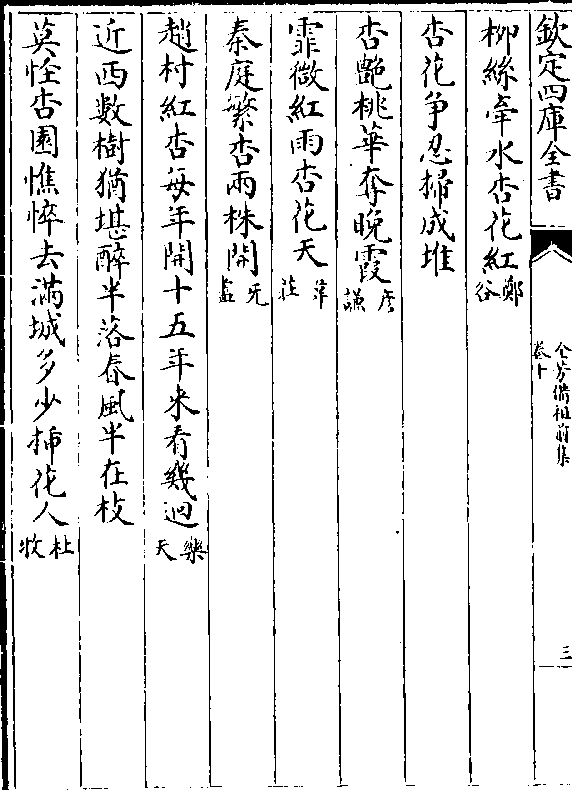 欽定四庫全書
全芳備祖前集
卷十
三
栁絲牽水杏花紅鄭谷
杏花爭忍掃成堆
杏艶桃華奪晚霞唐謙
霏微紅雨杏花天韋莊
秦庭繁杏兩株開元
趙村紅杏每年開十五年來看幾迴樂天
近西數樹猶堪醉半落春風半在枝
莫怪杏園憔悴去滿城多少揷花人杜牧